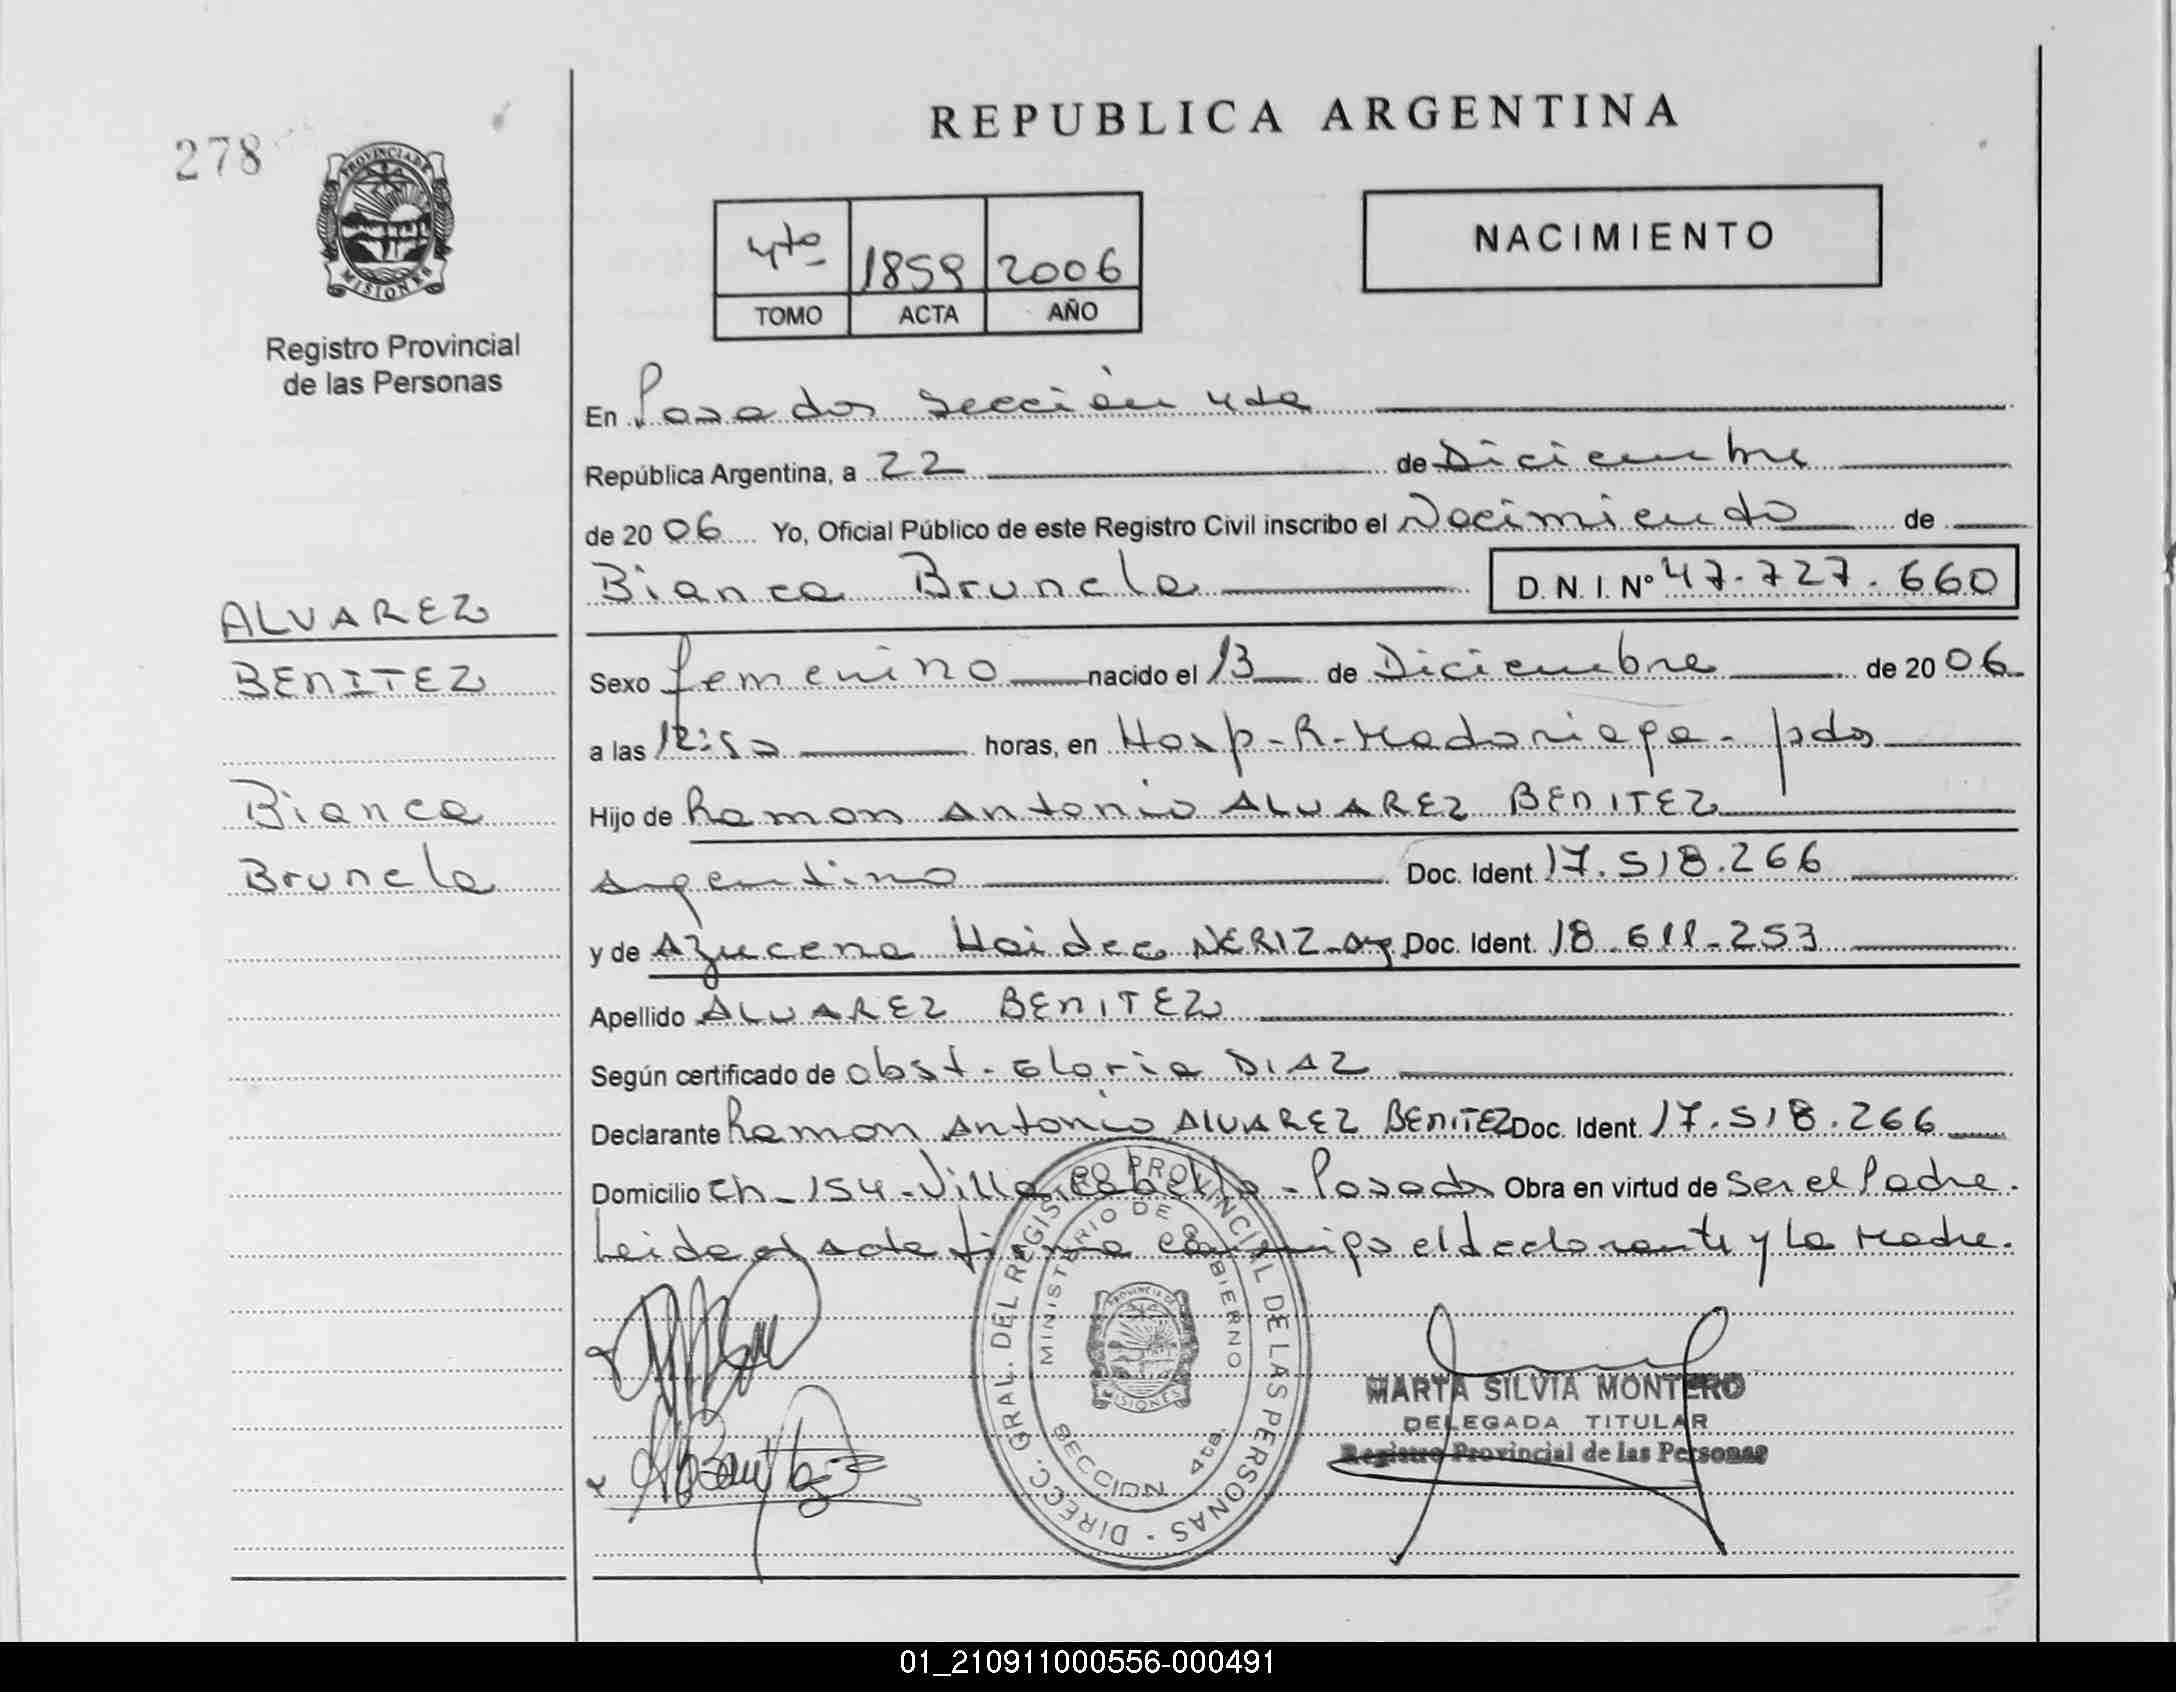 REPUBLICA ARGENTINA
278
PROVINCIA DE
MISIONES
Registro Provincial
de las Personas
4to 1859 2006
TOMO ACTA AÑO
NACIMIENTO
En Posadas Sección 4ta
República Argentina, a 22 de Diciembre
de 2006 Yo, Oficial Público de este Registro Civil inscribo el Nacimiento de
Bianca Brunela D.N.I. Nº 47.727.660
ALVAREZ
BENITEZ
Bianca
Brunela
Sexo femenino nacido el 13 de Diciembre de 2006
a las 12:50 horas, en Hosp-R-Madariaga-pdas
Hijo de Ramon Antonio ALVAREZ BENITEZ
Argentino Doc. Ident. 17.518.266
y de Azucena Haidee NERIZ-arg Doc. Ident. 18.611-253
Apellido ALVAREZ BENITEZ
Según certificado de obst-Gloria DIAZ
Declarante Ramon Antonio ALVAREZ BENITEZ Doc. Ident. 17.518.266
Domicilio Ch-154-Villa Cabello-Posadas Obra en virtud de Ser el Padre.
Leida el acta firma conmigo el declarante y la Madre.
DIRECC. GRAL. DEL REGISTRO PROVINCIAL DE LAS PERSONAS
MINISTERIO DE GOBIERNO
PROVINCIA DE
MISIONES
SECCION 4ta.
MARTA SILVIA MONTERO
DELEGADA TITULAR
Registro Provincial de las Personas
01_210911000556-000491